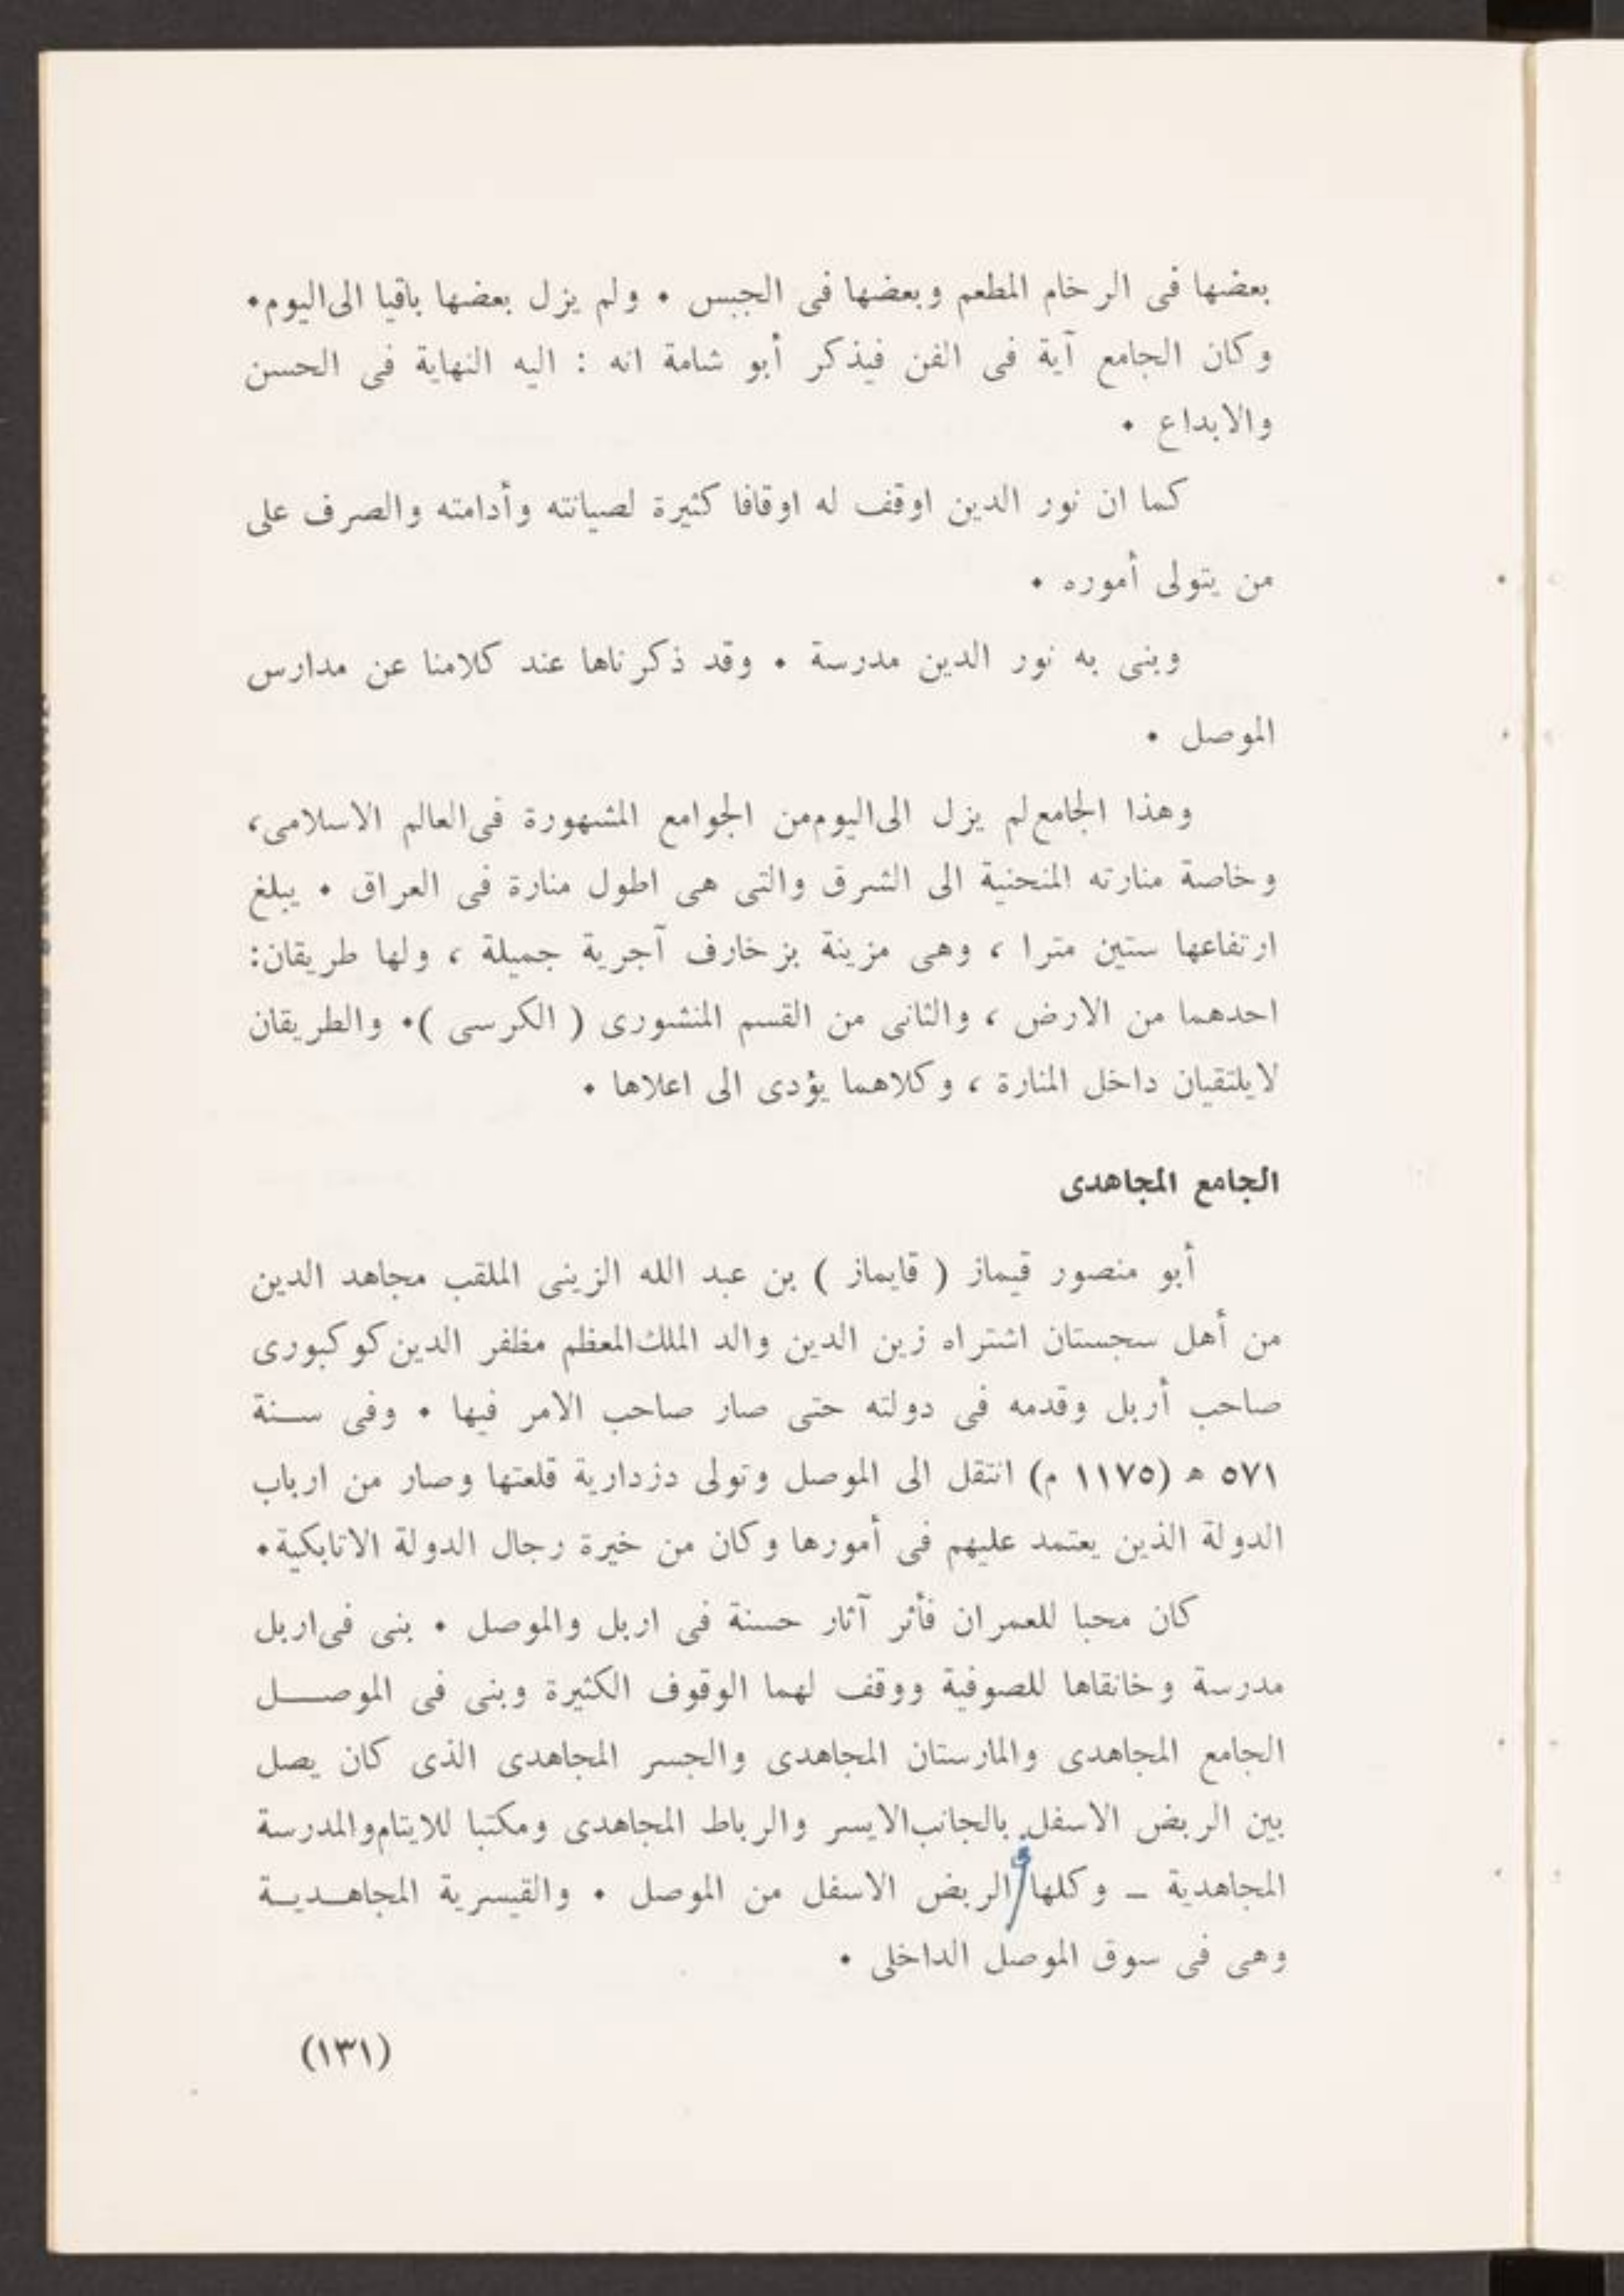 بعضها فى الرخام المطعم وبعضها فى الجبس ٠ ولم يزل بعضها باقيا الى اليوم٠
وكان الجامع آية فى الفن فيذكر أبو شامة انه : اليه النهاية فى الحسن
والابداع ٠
كما ان نور الدين اوقف له اوقافا كثيرة لصيانته وأدامته والصرف على
من يتولى أموره ٠
وبنى به نور الدين مدرسة ٠ وقد ذكرناها عند كلامنا عن مدارس
الموصل ٠
وهذا الجامع لم يزل الى اليوم من الجوامع المشهورة فى العالم الاسلامى،
وخاصة منارته المنحنية الى الشرق والتى هى اطول منارة فى العراق ٠ يبلغ
ارتفاعها ستين مترا ، وهى مزينة بزخارف آجرية جميلة ، ولها طريقان:
احدهما من الارض ، والثانى من القسم المنشورى ( الكرسى )٠ والطريقان
لايلتقيان داخل المنارة ، وكلاهما يؤدى الى اعلاها ٠
الجامع المجاهدى
أبو منصور قيماز ( قايماز ) بن عبد الله الزينى الملقب مجاهد الدين
من أهل سجستان اشتراه زين الدين والد الملك المعظم مظفر الدين كوكبورى
صاحب أربل وقدمه فى دولته حتى صار صاحب الامر فيها ٠ وفى سنة
٥٧١ هـ (١١٧٥ م) انتقل الى الموصل وتولى دزدارية قلعتها وصار من ارباب
الدولة الذين يعتمد عليهم فى أمورها وكان من خيرة رجال الدولة الاتابكية٠
كان محبا للعمران فأثر آثار حسنة فى اربل والموصل ٠ بنى فى اربل
مدرسة وخانقاها للصوفية ووقف لهما الوقوف الكثيرة وبنى فى الموصل
الجامع المجاهدى والمارستان المجاهدى والجسر المجاهدى الذى كان يصل
بين الربض الاسفل بالجانب الايسر والرباط المجاهدى ومكتبا للايتام والمدرسة
المجاهدية – وكلها فى الربض الاسفل من الموصل ٠ والقيسرية المجاهدية
وهى فى سوق الموصل الداخلى ٠
(١٣١)